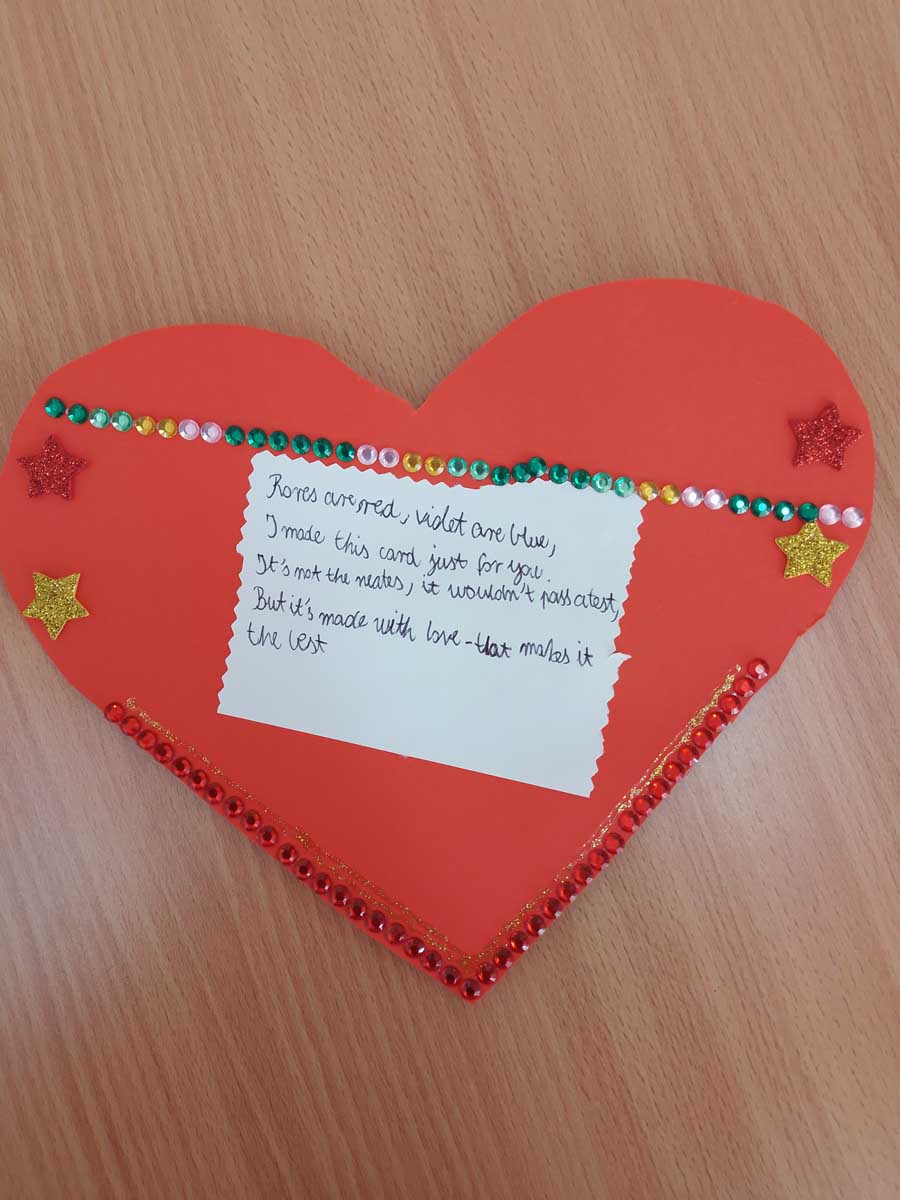 Roses are red, violet are blue,
I made this card just for you.
It's not the neates, it wouldn't pass a test,
But it's made with love - that makes it
the best